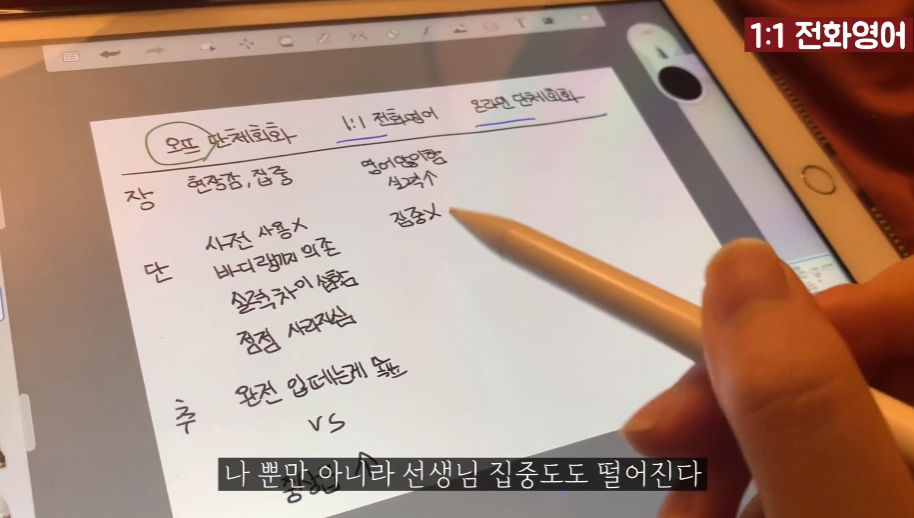 1:1 전화영어
오프 단체회화 1:1 전화영어 온라인 단체회화
장 현장감, 집중 영어많이함
실력↑
단 사전 사용X 집중X
바디랭귀지 의존
실력차이 심함
점점 사라지심
추 완전 입떼는게 목표
VS
나 뿐만 아니라 선생님 집중도도 떨어진다